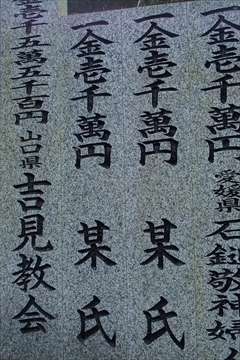 一金壱千萬円 愛媛県 石鎚敬神婦人
一金壱千萬円 某氏
一金壱千萬円 某氏
壱千五萬五千百円 山口県 吉見教会